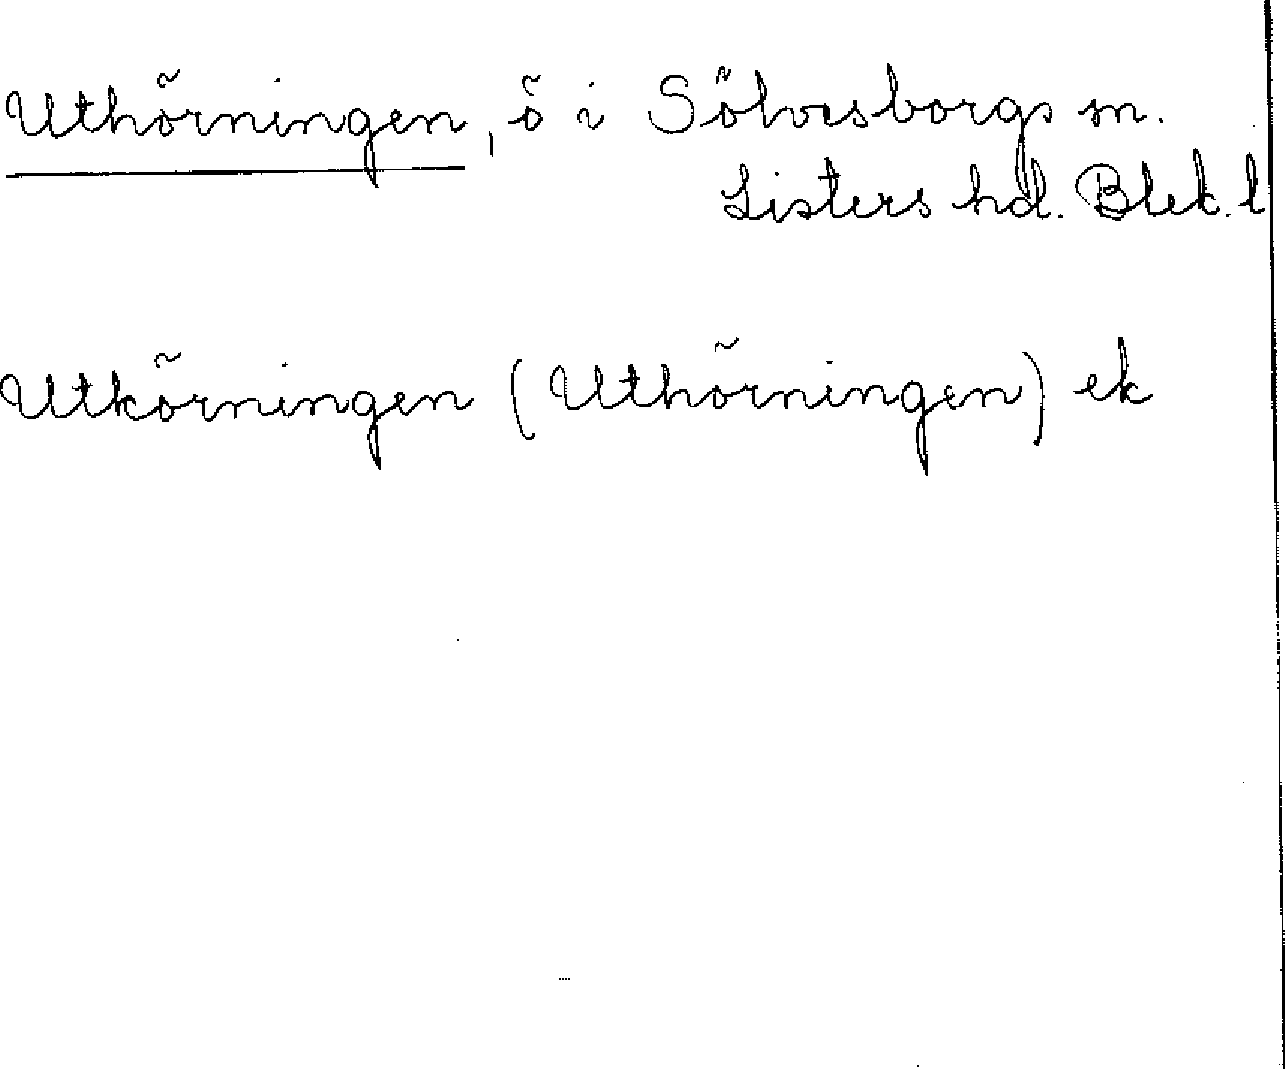 Uthörningen, ö i Sölvesborgs sn.
Listers hd. Blek. l
Utkörningen (Uthörningen) ek